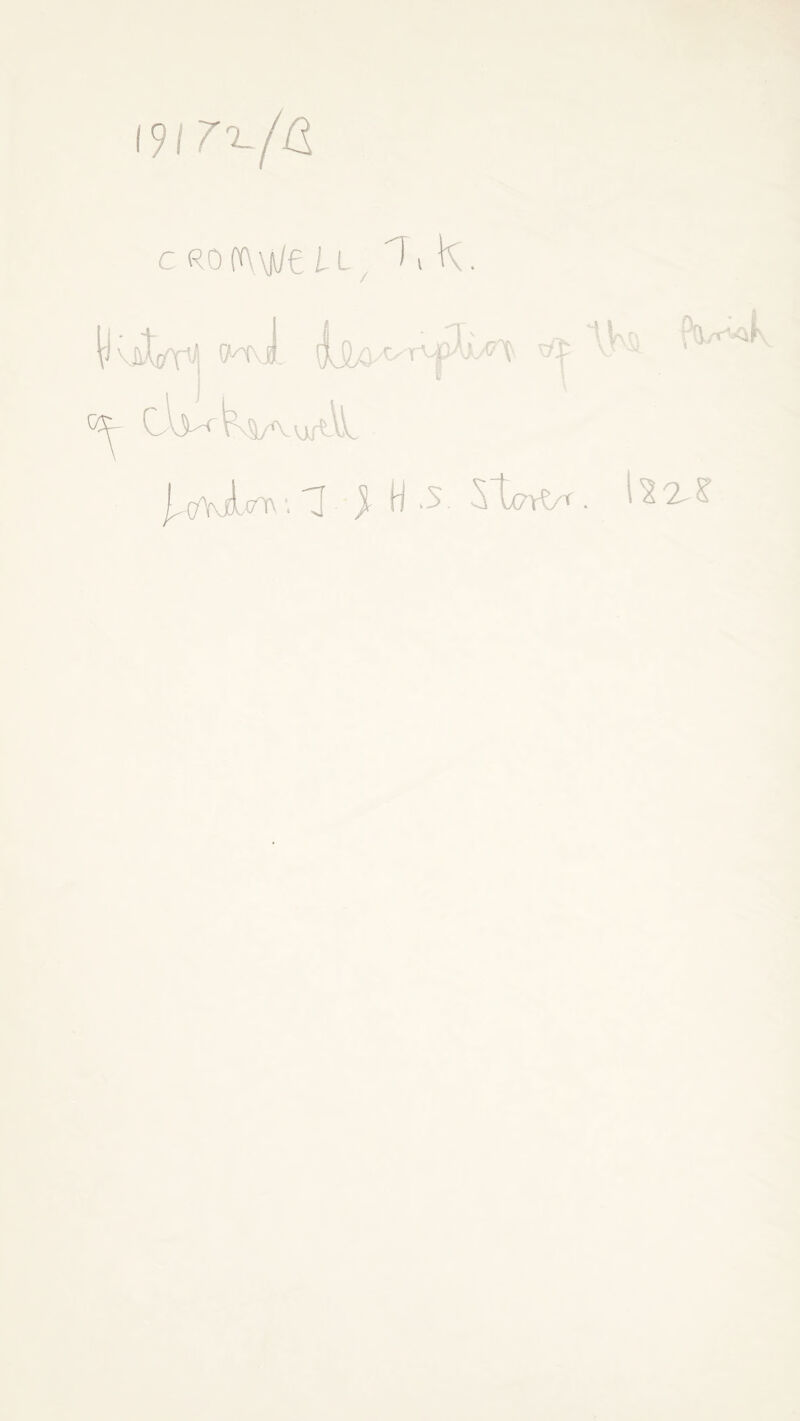 19172/B
CROMWELL, T. K.
History and description of the Parish
of Clerkenwell
London: J & H.S. Storer. 1828